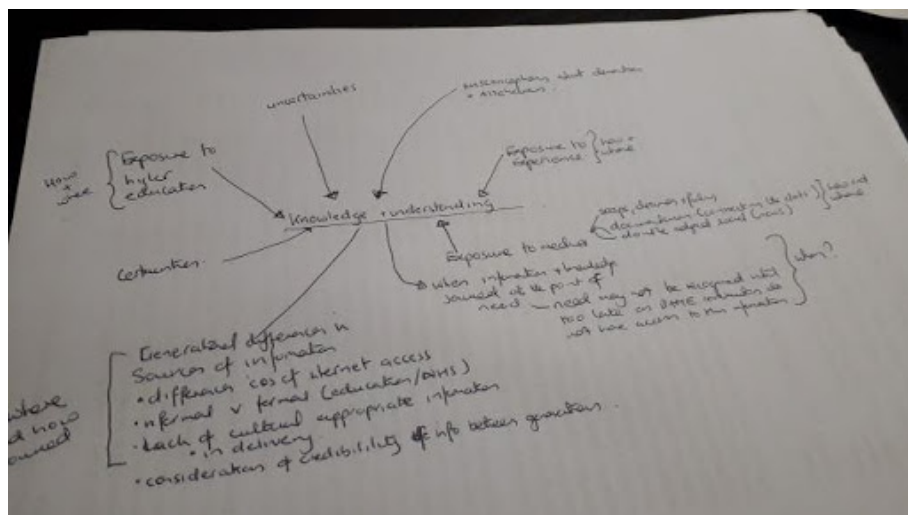 uncertainties
misconceptions about donation
How
+
where
Exposure to
higher
education
Exposure to
Experience
how +
where
Knowledge + understanding
Exposure to media
documentaries (connecting the dots)
how and
where
Certainties
when information + knowledge
sourced at the point of
need – need may not be recognised until
too late or BAME communities do
not have access to this information
when?
Generational differences in
Sources of information
• difference cos of internet access
• informal v formal (education/NHS)
• Lack of cultural appropriate information
• in delivery
• consideration of credibility of info between generations.
where
how